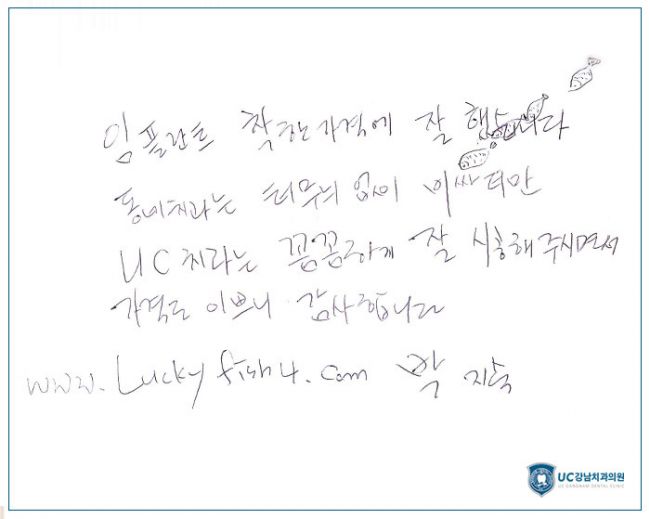 임플란트 착한가격에 잘 했습니다
동네치과는 터무늬 없이 비싸더만
UC치과는 꼼꼼하게 잘 시술해주시면서
가격도 이쁘니 감사합니다
www.Luckyfish4.com 박
UC강남치과의원
UC GANGNAM DENTAL CLINIC